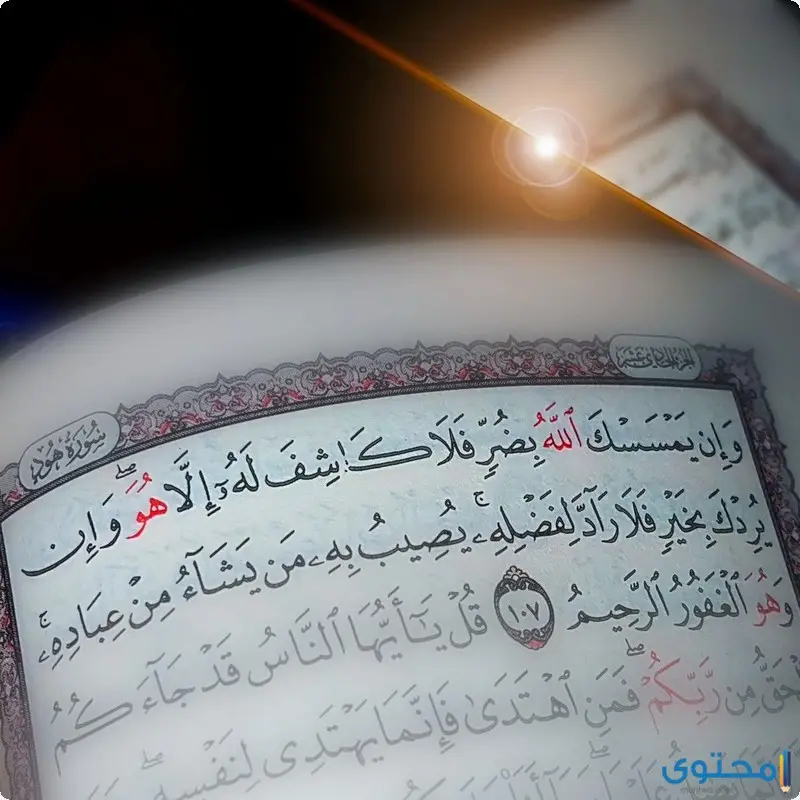 الجزء الحادي عشر
سُورَةُ هُودٍ
وَإِن يَمْسَسْكَ ٱللَّهُ بِضُرٍّ فَلَا كَاشِفَ لَهُۥٓ إِلَّا هُوَ ۖ وَإِن
يُرِدْكَ بِخَيْرٍ فَلَا رَآدَّ لِفَضْلِهِۦ ۚ يُصِيبُ بِهِۦ مَن يَشَآءُ مِنْ عِبَادِهِۦ ۚ
وَهُوَ ٱلْغَفُورُ ٱلرَّحِيمُ ١٠٧ قُلْ يَٰٓأَيُّهَا ٱلنَّاسُ قَدْ جَآءَكُمُ
ٱلْحَقُّ مِن رَّبِّكُمْ ۖ فَمَنِ ٱهْتَدَىٰ فَإِنَّمَا يَهْتَدِى لِنَفْسِهِۦ ۖ
محتوى